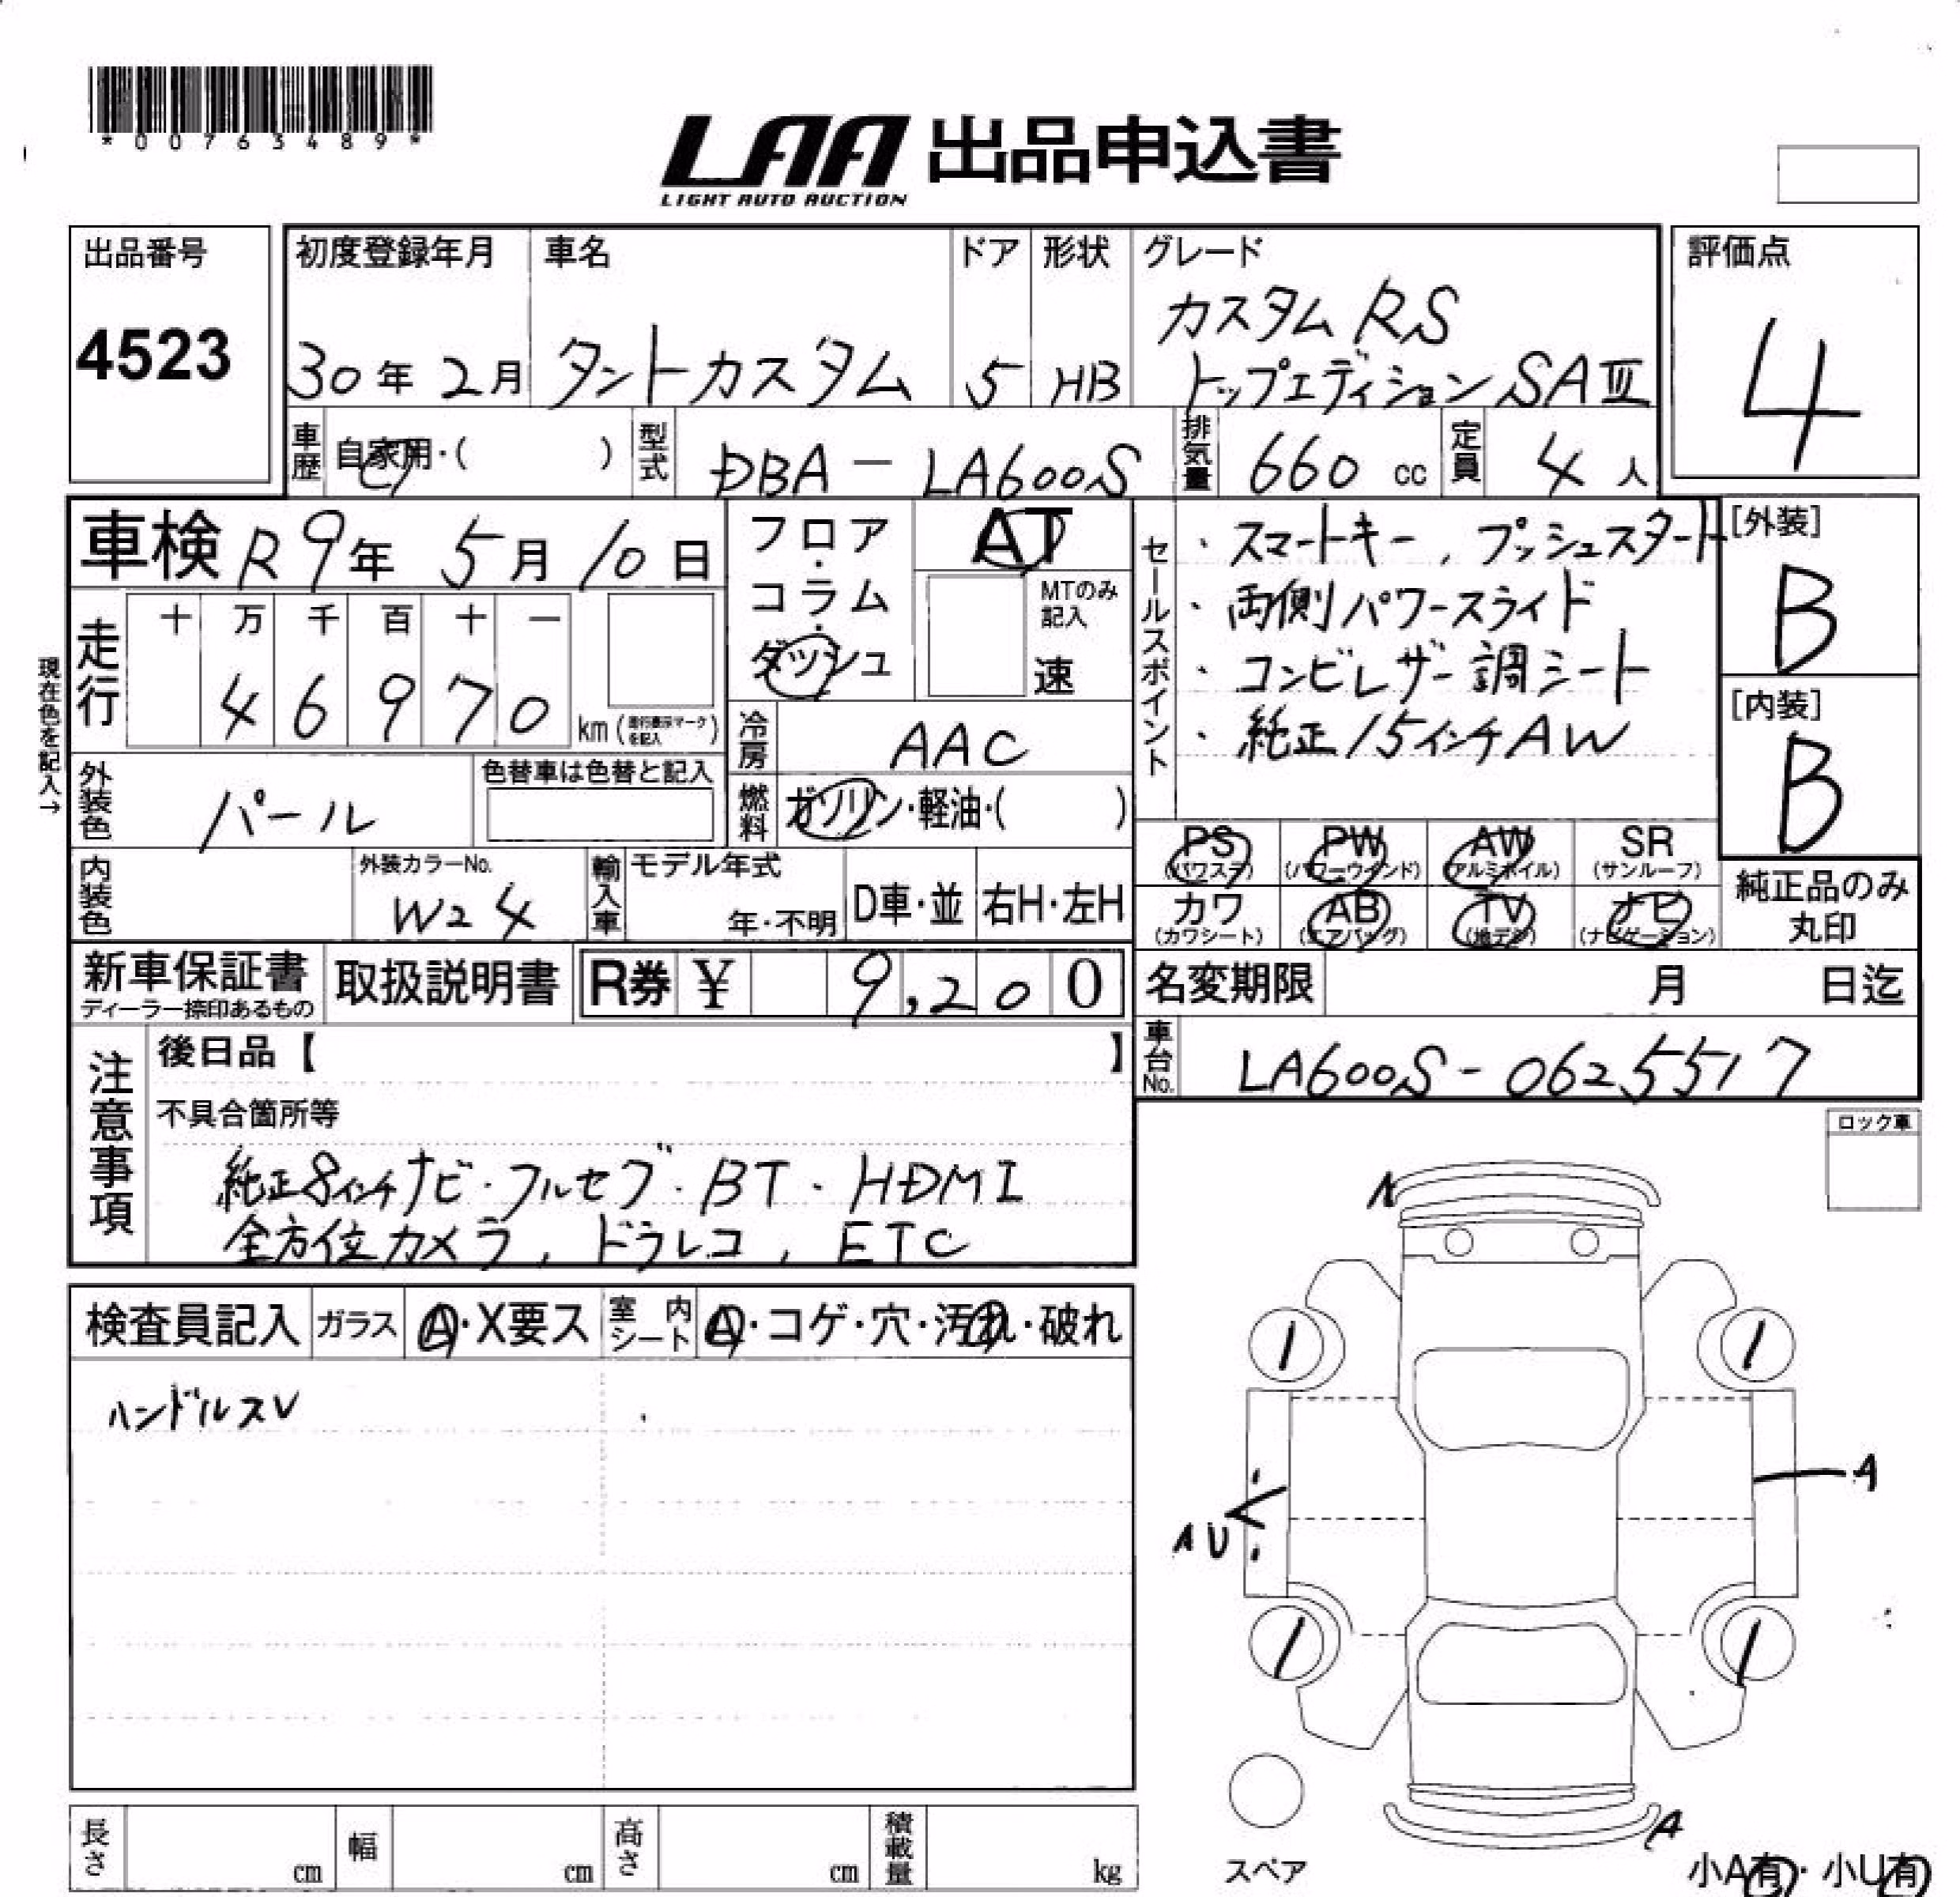 *00763489*
LAA 出品申込書
LIGHT AUTO AUCTION
出品番号
4523
初度登録年月
30年 2月
車名
タントカスタム
ドア
5
形状
HB
グレード
カスタム RS
トップエディション SAⅢ
評価点
4
車歴
自家用・( )
型式
DBA - LA600S
排気量
660 cc
定員
4 人
車検 R9年 5月 10日
フロア・コラム・ダッシュ
AT
MTのみ記入
速
セールスポイント
・スマートキー、プッシュスタート
・両側パワースライド
・コンビレザー調シート
・純正15インチAW
[外装]
B
[内装]
B
現在色を記入→
走行
十 万 千 百 十 一
4 6 9 7 0 km (走行表示マークを記入)
冷房
AAC
外装色
パール
色替車は色替と記入
燃料
ガソリン・軽油・( )
PS (パワステ)
PW (パワーウインド)
AW (アルミホイル)
SR (サンルーフ)
カワ (カワシート)
AB (エアバッグ)
TV (地デジ)
ナビ (ナビゲーション)
純正品のみ
丸印
内装色
外装カラーNo.
W24
輸入車
モデル年式
年・不明
D車・並
右H・左H
新車保証書
ディーラー捺印あるもの
取扱説明書
R券 ¥ 9,200
名変期限 月 日迄
車台No.
LA600S - 0625517
注意事項
後日品【 】
不具合箇所等
純正8インチナビ・フルセグ・BT・HDMI
全方位カメラ、ドラレコ、ETC
ロック車
検査員記入
ガラス
A・X要ス
室内シート
A・コゲ・穴・汚れ・破れ
ハンドルスレ
A
A U
A
A
スペア
小A有・小U有
長さ cm
幅 cm
高さ cm
積載量 kg